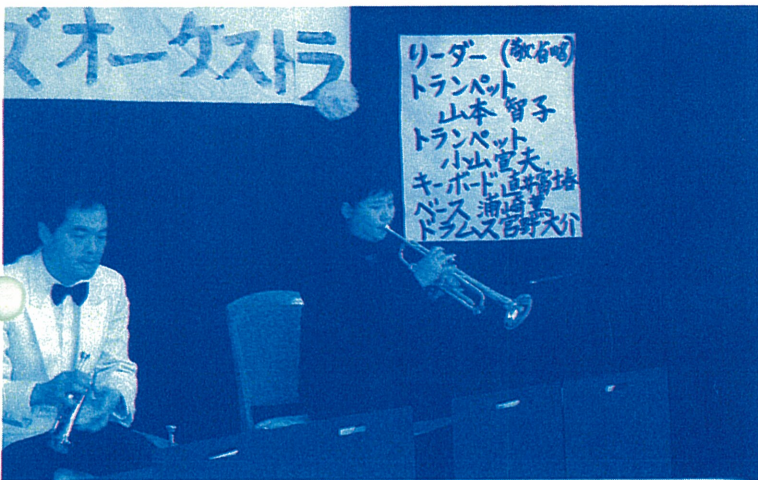 ズオーケストラ
リーダー (敬省略)
トランペット
山本 智子
トランペット
小山宣夫
キーボード
ベース 浦崎
ドラムス宮野大介